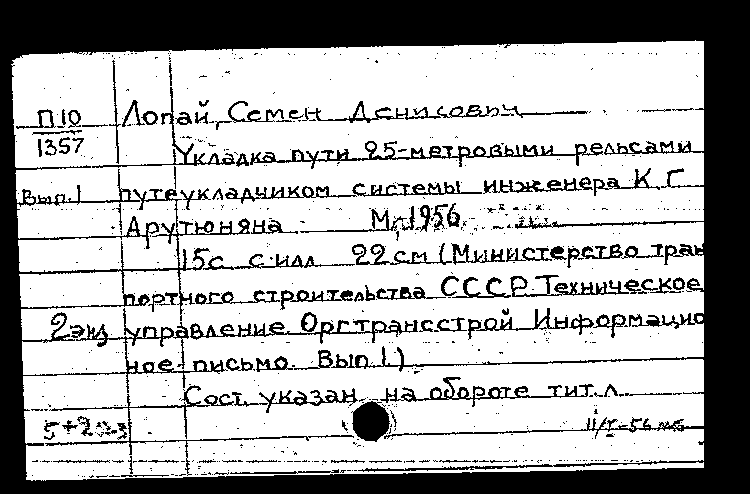 П10 Лопай, Семен Денисович
1357 Укладка пути 25-метровыми рельсами
Вып.1 путеукладчиком системы инженера К Г
Арутюняна М, 1956
15с с илл 22 см (Министерство тран
портного строительства СССР. Техническое
2 экз управление. Оргтрансстрой Информацио
ное письмо. Вып 1.)
Сост. указан на обороте тит. л